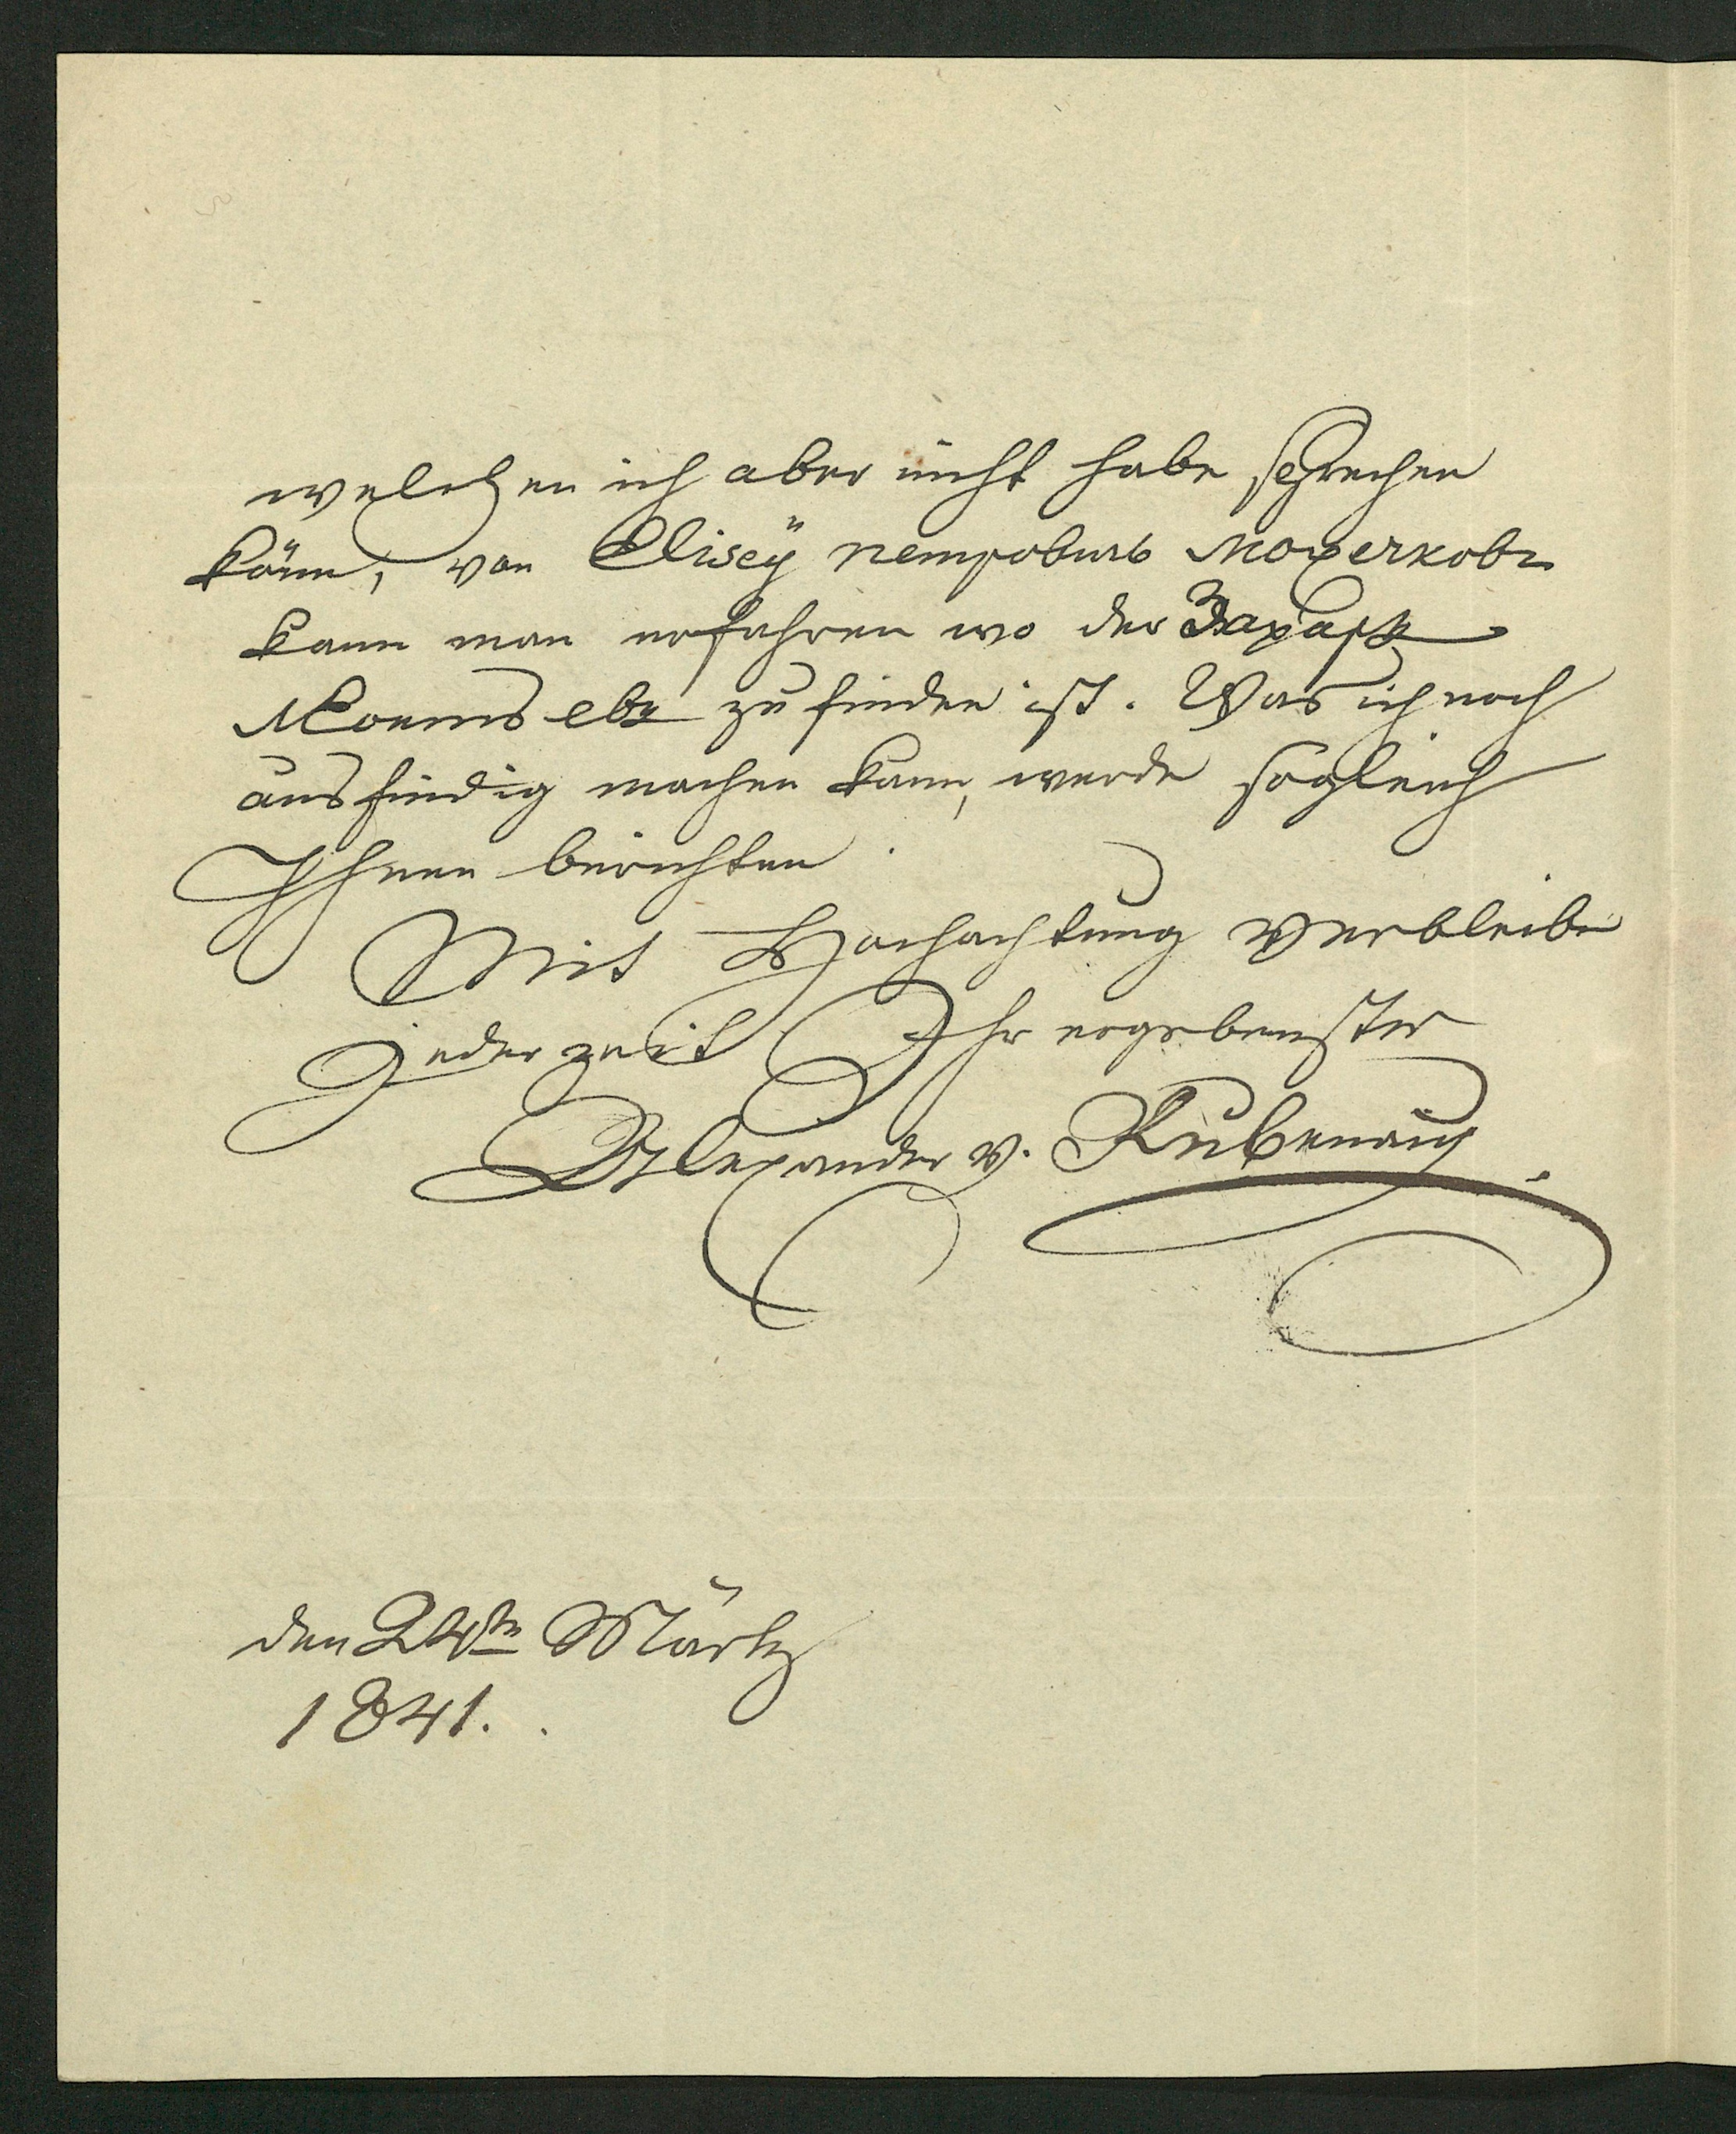 welchen ich aber nicht habe sprechen
könn, von Elisey петровичь Мочечковъ
kann man erfahren wo der Захаръ
Моисѣевъ zu finden ist. Was ich noch
ausfindig machen kann, werde sogleich
Ihnen berichten.
Mit Hochachtung verbleibe
jederzeit Ihr ergebenster
Alexander v. Rübenau
den 24ten Märtz
1841.